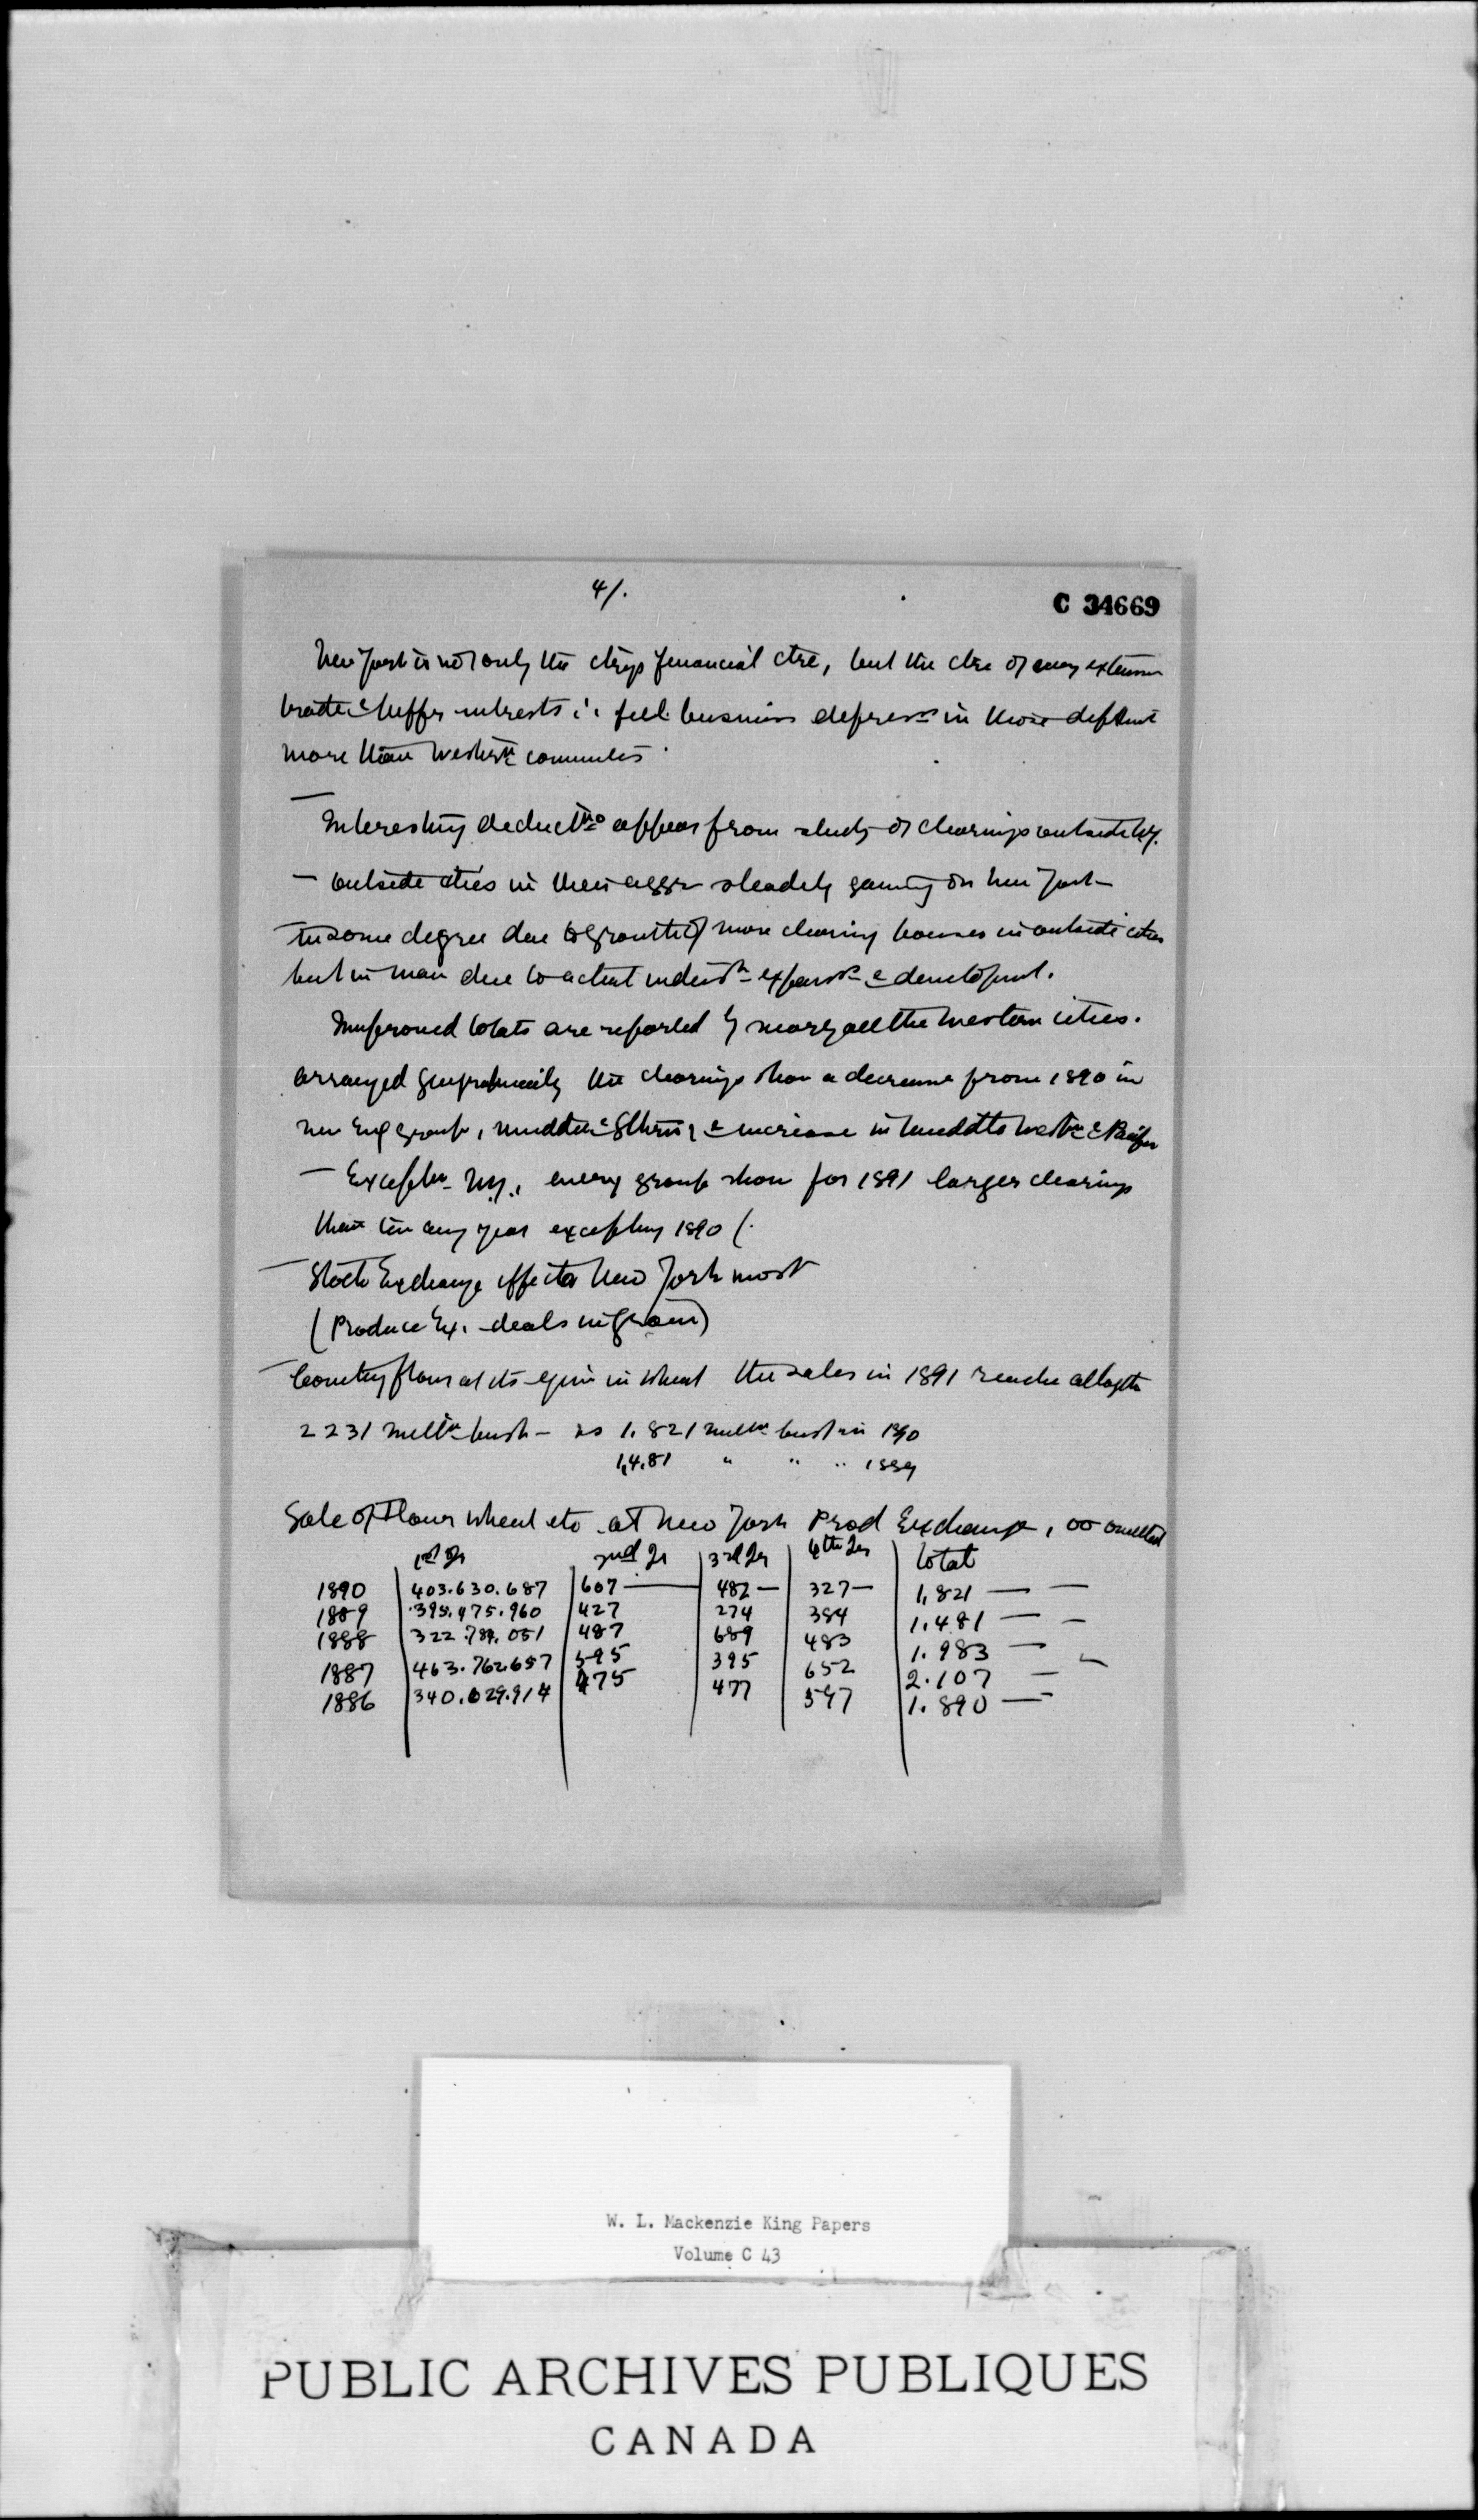 4/.
C 34669
New York is not only the chief financial ctre, but the ctre of many
trade & interests i. feel business depress in those
more than western
Interesting deductns appear from study of clearings outside N.Y.
— outside cities in their aggr steadily gaining on New York
— in some degree due to growth of more clearing houses in outside cities
but in main due to actual indust expans & developmt.
Improved totals are reported by nearly all the western cities.
arranged geographically the clearings show a decrease from 1890 in
New Eng group, middle & & increase in & Pacific
— Exceptn N.Y., every group show for 1891 larger clearings
than in any year excepting 1890 (.
— Stock Exchange effects New York most
(Produce Ex. deals in grain)
— Counting flour at its equiv in wheat the sales in 1891 reache altogth
2231 milln bush — as 1.821 milln bush in 1890
1,4.81 " " " 1889
Sale of Flour wheat etc at New York Prod Exchange, 00 omitted
1st Qr 2nd Qr 3rd Qr 4th Qr total
1890 403.630.687 607 — 482 — 327 — 1,821 — —
1889 395.975.960 427 274 384 1.481 — —
1888 322.784.051 487 689 483 1.983 —
1887 463.762.657 595 395 652 2.107 — —
1886 340.629.914 475 477 597 1.890 —
W. L. Mackenzie King Papers
Volume C 43
PUBLIC ARCHIVES PUBLIQUES
CANADA